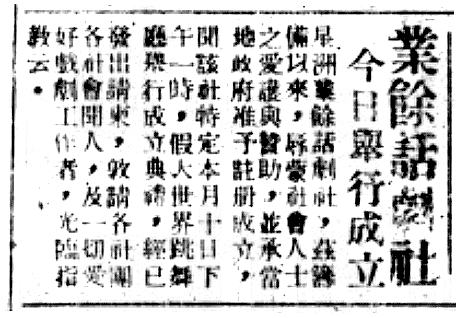 業餘話劇社
今日舉行成立
星洲業餘話劇社，茲籌
備以來，辱蒙社會人士
之愛護與贊助，並承當
地政府准予註册成立，
聞該社特定本月十日下
午一時，假大世界跳舞
廳舉行成立典禮，經已
發出請柬，敦請各社團
各社會聞人，及一切愛
好戲劇工作者，光臨指
教云。